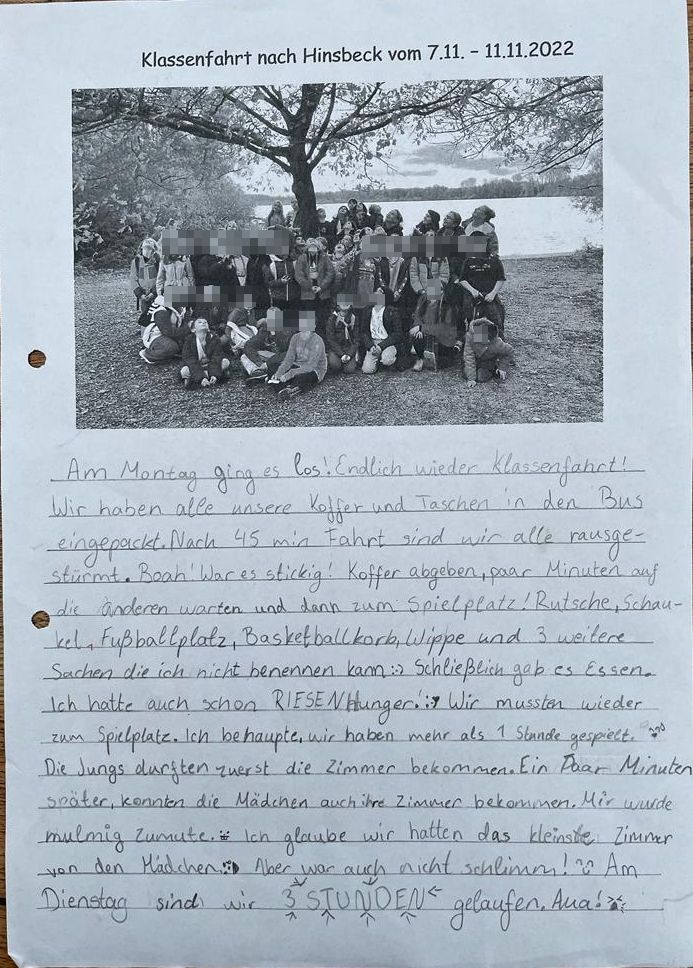 Klassenfahrt nach Hinsbeck vom 7.11. – 11.11.2022
Am Montag ging es los! Endlich wieder Klassenfahrt!
Wir haben alle unsere Koffer und Taschen in den Bus
eingepackt. Nach 45 min Fahrt sind wir alle rausge-
stürmt. Boah! War es stickig! Koffer abgeben, paar Minuten auf
die anderen warten und dann zum Spielplatz! Rutsche, Schau-
kel, Fußballplatz, Basketballkorb, Wippe und 3 weitere
Sachen die ich nicht benennen kann :) Schließlich gab es Essen.
Ich hatte auch schon RIESEN Hunger! :) Wir mussten wieder
zum Spielplatz. Ich behaupte, wir haben mehr als 1 Stunde gespielt.
Die Jungs durften zuerst die Zimmer bekommen. Ein Paar Minuten
später, konnten die Mädchen auch ihre Zimmer bekommen. Mir wurde
mulmig zumute. Ich glaube wir hatten das kleinste Zimmer
von den Mädchen. Aber war auch nicht schlimm! Am
Dienstag sind wir 3 STUNDEN gelaufen. Aua!